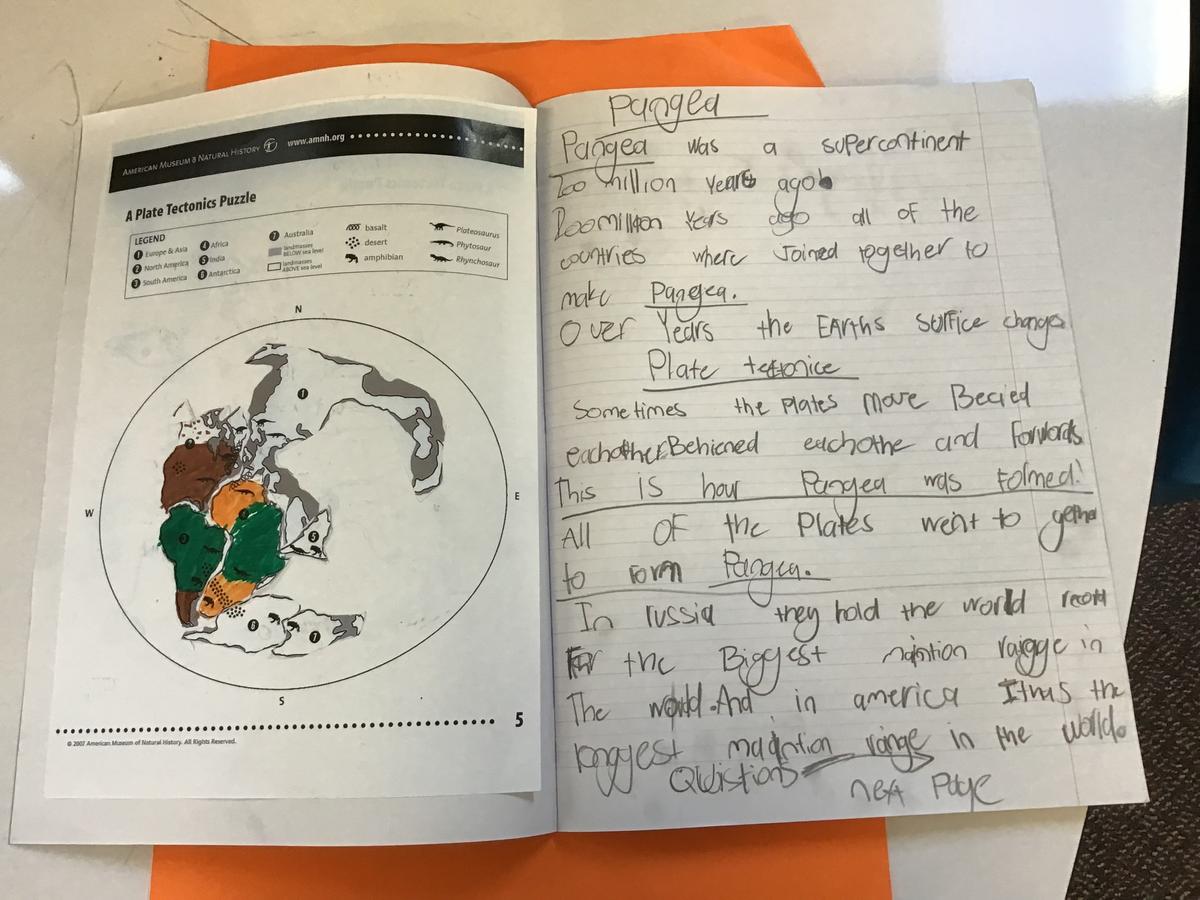 AMERICAN MUSEUM & NATURAL HISTORY www.amnh.org
A Plate Tectonics Puzzle
LEGEND
1 Europe & Asia
2 North America
3 South America
4 Africa
5 India
6 Antarctica
7 Australia
landmasses
BELOW sea level
landmasses
ABOVE sea level
basalt
desert
amphibian
Plateosaurus
Phytosaur
Rhynchosaur
N
W
E
S
1
3
5
6
7
5
© 2007 American Museum of Natural History. All Rights Reserved.
Pangea
Pangea was a supercontinent
200 million years ago
200million Years ago all of the
countries where Joined together to
make Pangea.
Over Years the EARths surfice changes
Plate tectonice
Sometimes the Plates Move Becied
eachother Behiened eachothe and Forwords
This is hour Pangea was Folmed!
All OF the Plates went to getha
to Form Pangea.
In russia they hold the world
For the Biggest raigge in
The world. And in america Ithas the
longgest range in the world.
Qwistions next Page